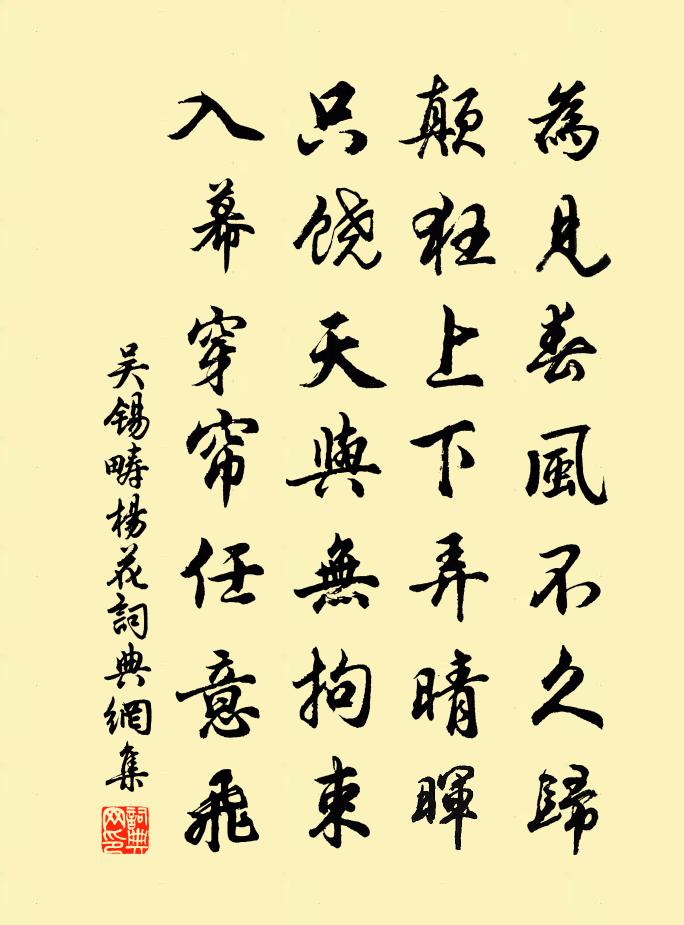 為見春風不久歸
顛狂上下弄晴暉
只饶天與無拘束
入幕穿帘任意飛
吴錫疇楊花詞典網集
詞典網印